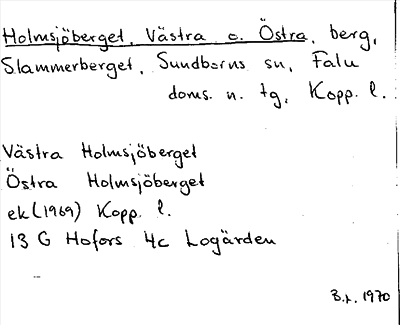 Holmsjöberget, Västra o. Östra, berg,
Slammerberget, Sundborns sn, Falu
doms. n. tg, Kopp. l.
Västra Holmsjöberget
Östra Holmsjöberget
ek (1969) Kopp. l.
13 G Hofors 4c Logärden
1970